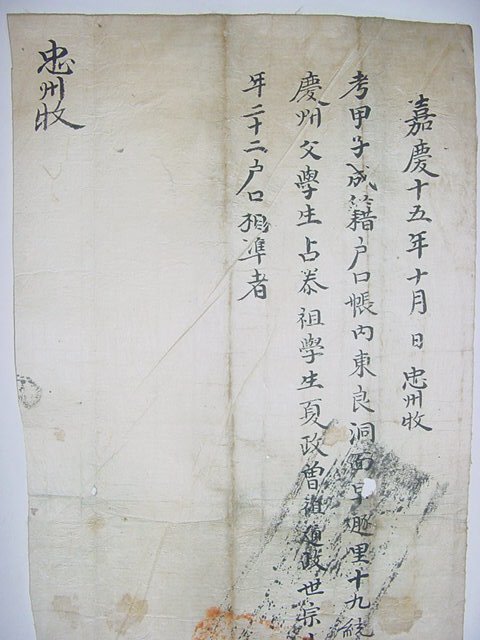 嘉慶十五年十月 日 忠州牧
考甲子成籍户口帳内東良洞面早遯里十九統
慶州父學生占泰祖學生夏政曾祖道政世宗
年二十二户口相準者
忠州牧